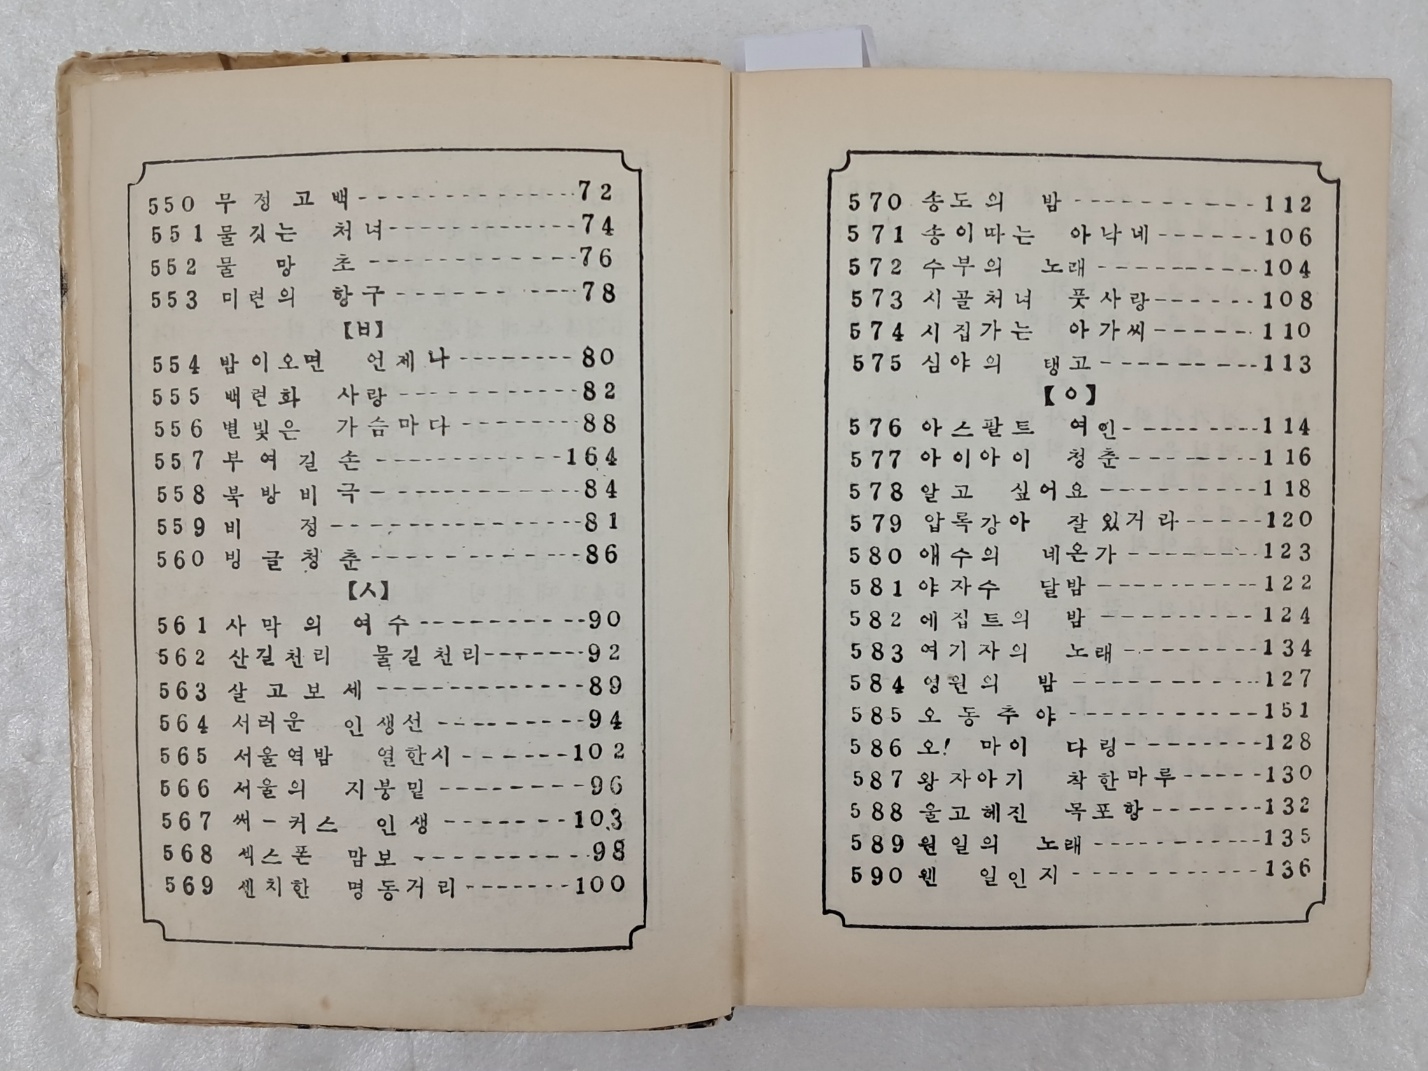 550 무정고백------------72
551 물깃는 처녀------------74
552 물망초------------76
553 미련의 항구------------78
【ㅂ】
554 밤이오면 언제나--------80
555 백련화 사랑----------82
556 별빛은 가슴마다--------88
557 부여길손------------164
558 북방비극------------84
559 비 정--------------81
560 빙글청춘------------86
【ㅅ】
561 사막의 여수----------90
562 산길천리 물길천리------92
563 살고보세------------89
564 서러운 인생선--------94
565 서울역밤 열한시------102
566 서울의 지붕밑--------96
567 써-커스 인생--------103
568 섹스폰 맘보----------98
569 센치한 명동거리------100
570 송도의 밤----------112
571 송이따는 아낙네------106
572 수부의 노래----------104
573 시골처녀 풋사랑------108
574 시집가는 아가씨------110
575 심야의 탱고----------113
【ㅇ】
576 아스팔트 여인--------114
577 아이아이 청춘--------116
578 알고 싶어요----------118
579 압록강아 잘있거라-----120
580 애수의 네온가--------123
581 야자수 달밤----------122
582 에집트의 밤----------124
583 여기자의 노래--------134
584 영원의 밤------------127
585 오동추야------------151
586 오! 마이 다링--------128
587 왕자아기 착한마루-----130
588 울고헤진 목포항-------132
589 원일의 노래----------135
590 웬 일인지------------136